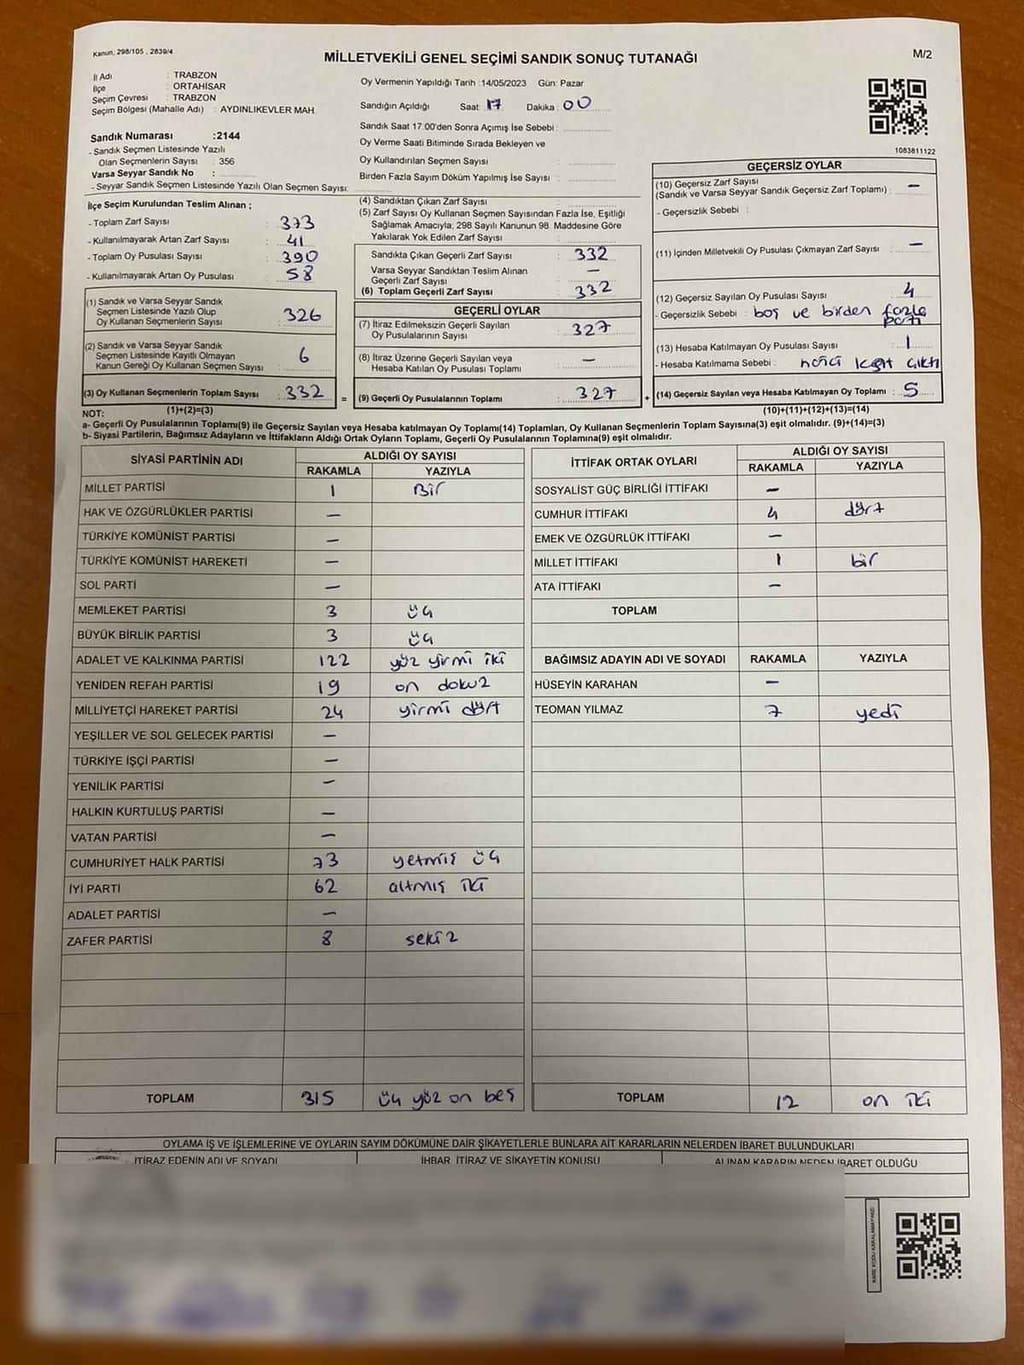 Kanun, 298/105 , 2839/4
MİLLETVEKİLİ GENEL SEÇİMİ SANDIK SONUÇ TUTANAĞI
M/2
İl Adı : TRABZON
İlçe : ORTAHİSAR
Seçim Çevresi : TRABZON
Seçim Bölgesi (Mahalle Adı) : AYDINLIKEVLER MAH.
Sandık Numarası :2144
- Sandık Seçmen Listesinde Yazılı
Olan Seçmenlerin Sayısı : 356
Varsa Seyyar Sandık No :
- Seyyar Sandık Seçmen Listesinde Yazılı Olan Seçmen Sayısı:
Oy Vermenin Yapıldığı Tarih :14/05/2023 Gün: Pazar
Sandığın Açıldığı Saat 17 Dakika : 00
Sandık Saat 17:00'den Sonra Açımış İse Sebebi :
Oy Verme Saati Bitiminde Sırada Bekleyen ve
Oy Kullandırılan Seçmen Sayısı :
Birden Fazla Sayım Döküm Yapılmış İse Sayısı :
1083811122
İlçe Seçim Kurulundan Teslim Alınan ;
- Toplam Zarf Sayısı : 373
- Kullanılmayarak Artan Zarf Sayısı : 41
- Toplam Oy Pusulası Sayısı : 390
- Kullanılmayarak Artan Oy Pusulası : 58
(1) Sandık ve Varsa Seyyar Sandık
Seçmen Listesinde Yazılı Olup
Oy Kullanan Seçmenlerin Sayısı : 326
(2) Sandık ve Varsa Seyyar Sandık
Seçmen Listesinde Kayıtlı Olmayan
Kanun Gereği Oy Kullanan Seçmen Sayısı : 6
(3) Oy Kullanan Seçmenlerin Toplam Sayısı : 332 =
(1)+(2)=(3)
(4) Sandıktan Çıkan Zarf Sayısı :
(5) Zarf Sayısı Oy Kullanan Seçmen Sayısından Fazla İse, Eşitliği
Sağlamak Amacıyla; 298 Sayılı Kanunun 98. Maddesine Göre
Yakılarak Yok Edilen Zarf Sayısı :
Sandıkta Çıkan Geçerli Zarf Sayısı : 332
Varsa Seyyar Sandıktan Teslim Alınan
Geçerli Zarf Sayısı : —
(6) Toplam Geçerli Zarf Sayısı : 332
GEÇERLİ OYLAR
(7) İtiraz Edilmeksizin Geçerli Sayılan
Oy Pusulalarının Sayısı : 327
(8) İtiraz Üzerine Geçerli Sayılan veya
Hesaba Katılan Oy Pusulası Toplamı : —
(9) Geçerli Oy Pusulalarının Toplamı : 327 +
GEÇERSİZ OYLAR
(10) Geçersiz Zarf Sayısı
(Sandık ve Varsa Seyyar Sandık Geçersiz Zarf Toplamı) : —
- Geçersizlik Sebebi :
(11) İçinden Milletvekili Oy Pusulası Çıkmayan Zarf Sayısı : —
(12) Geçersiz Sayılan Oy Pusulası Sayısı : 4
- Geçersizlik Sebebi : boş ve birden fazla
parti
(13) Hesaba Katılmayan Oy Pusulası Sayısı : 1
- Hesaba Katılmama Sebebi : harici kağıt çıktı
(14) Geçersiz Sayılan veya Hesaba Katılmayan Oy Toplamı : 5
(10)+(11)+(12)+(13)=(14)
NOT:
a- Geçerli Oy Pusulalarının Toplamı(9) ile Geçersiz Sayılan veya Hesaba katılmayan Oy Toplamı(14) Toplamları, Oy Kullanan Seçmenlerin Toplam Sayısına(3) eşit olmalıdır. (9)+(14)=(3)
b- Siyasi Partilerin, Bağımsız Adayların ve İttifakların Aldığı Ortak Oyların Toplamı, Geçerli Oy Pusulalarının Toplamına(9) eşit olmalıdır.
SİYASİ PARTİNİN ADI ALDIĞI OY SAYISI
RAKAMLA YAZIYLA
MİLLET PARTİSİ 1 Bir
HAK VE ÖZGÜRLÜKLER PARTİSİ —
TÜRKİYE KOMÜNİST PARTİSİ —
TÜRKİYE KOMÜNİST HAREKETİ —
SOL PARTİ —
MEMLEKET PARTİSİ 3 üç
BÜYÜK BİRLİK PARTİSİ 3 üç
ADALET VE KALKINMA PARTİSİ 122 yüz yirmi iki
YENİDEN REFAH PARTİSİ 19 on dokuz
MİLLİYETÇİ HAREKET PARTİSİ 24 yirmi dört
YEŞİLLER VE SOL GELECEK PARTİSİ —
TÜRKİYE İŞÇİ PARTİSİ —
YENİLİK PARTİSİ —
HALKIN KURTULUŞ PARTİSİ —
VATAN PARTİSİ —
CUMHURİYET HALK PARTİSİ 73 yetmiş üç
İYİ PARTİ 62 altmış iki
ADALET PARTİSİ —
ZAFER PARTİSİ 8 sekiz
TOPLAM 315 üç yüz on beş
İTTİFAK ORTAK OYLARI ALDIĞI OY SAYISI
RAKAMLA YAZIYLA
SOSYALİST GÜÇ BİRLİĞİ İTTİFAKI —
CUMHUR İTTİFAKI 4 dört
EMEK VE ÖZGÜRLÜK İTTİFAKI —
MİLLET İTTİFAKI 1 bir
ATA İTTİFAKI —
TOPLAM
BAĞIMSIZ ADAYIN ADI VE SOYADI RAKAMLA YAZIYLA
HÜSEYİN KARAHAN —
TEOMAN YILMAZ 7 yedi
TOPLAM 12 on iki
OYLAMA İŞ VE İŞLEMLERİNE VE OYLARIN SAYIM DÖKÜMÜNE DAİR ŞİKAYETLERLE BUNLARA AİT KARARLARIN NELERDEN İBARET BULUNDUKLARI
İTİRAZ EDENİN ADI VE SOYADI İHBAR, İTİRAZ VE ŞİKAYETİN KONUSU ALINAN KARARIN NEDEN İBARET OLDUĞU
KARE KODU KARALAMAYINIZ!